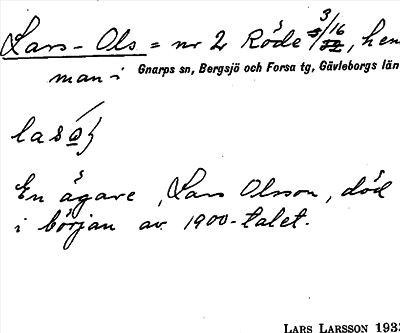 Lars-Ols = nr 2 Röde 3/16, hem
man i Gnarps sn, Bergsjö och Forsa tg, Gävleborgs län
En ägare, Lars Olsson, död
i början av 1900-talet.
LARS LARSSON 193